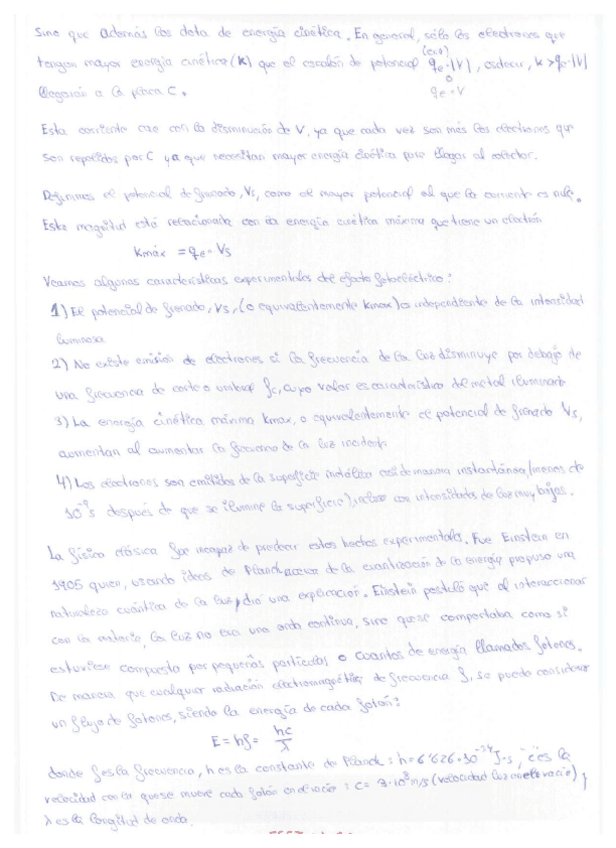 Sino que además los dota de energía cinética. En general, sólo los electrones que
(e>0)
tengan mayor energía cinética (K) que el escalón de potencial qe·|V|, es decir, K>qe·|V|
o
llegarán a la placa C. qe·V
Esta corriente cae con la disminución de V, ya que cada vez son más los electrones que
son repelidos por C ya que necesitan mayor energía cinética para llegar al colector.
Definimos el potencial de frenado, Vs, como el mayor potencial al que la corriente es nula.
Esta magnitud está relacionada con la energía cinética máxima que tiene un electrón
Kmáx = qe·Vs
Veamos algunas características experimentales del efecto fotoeléctrico:
1) El potencial de frenado, Vs, (o equivalentemente Kmax) es independiente de la intensidad
luminosa
2) No existe emisión de electrones si la frecuencia de la luz disminuye por debajo de
una frecuencia de corte o umbral fc, cuyo valor es característico del metal iluminado
3) La energía cinética máxima Kmax, o equivalentemente el potencial de frenado Vs,
aumentan al aumentar la frecuencia de la luz incidente
4) Los electrones son emitidos de la superficie metálica casi de manera instantánea (menos de
10⁻⁹s después de que se ilumine la superficie), incluso con intensidades de luz muy bajas.
La física clásica fue incapaz de predecir estos hechos experimentales. Fue Einstein en
1905 quien, usando ideas de Planck acerca de la cuantización de la energía propuso una
naturaleza cuántica de la luz y dió una explicación. Einstein postuló que al interaccionar
con la materia, la luz no era una onda continua, sino que se comportaba como si
estuviese compuesta por pequeñas partículas o cuantos de energía llamados fotones.
De manera que cualquier radiación electromagnética de frecuencia f, se puede considerar
un flujo de fotones, siendo la energía de cada fotón:
E = hf = hc/λ
donde f es la frecuencia, h es la constante de Planck: h = 6'626·10⁻³⁴ J·s, c es la
velocidad con la que se mueve cada fotón en el vacío: c = 3·10⁸ m/s (velocidad luz en el vacío) y
λ es la longitud de onda.